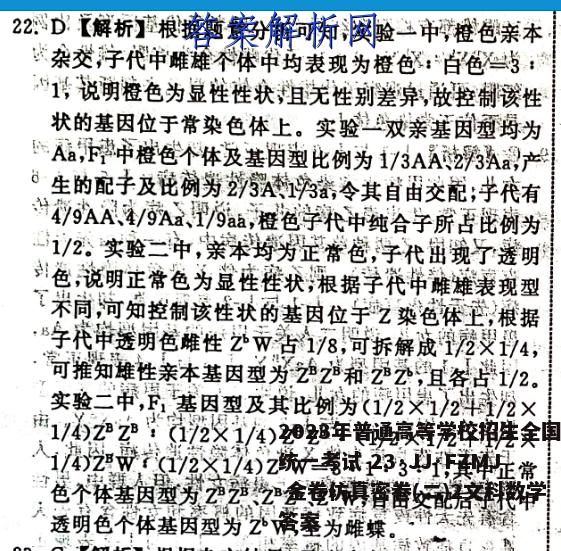 答案解析网
22. D 【解析】根据题意分析可知,实验一中,橙色亲本
杂交,子代中雌雄个体中均表现为橙色∶白色=3∶
1,说明橙色为显性性状,且无性别差异,故控制该性
状的基因位于常染色体上。实验一双亲基因型均为
Aa,F₁中橙色个体及基因型比例为1/3AA、2/3Aa,产
生的配子及比例为2/3A、1/3a,令其自由交配;子代有
4/9AA、4/9Aa、1/9aa,橙色子代中纯合子所占比例为
1/2。实验二中,亲本均为正常色,子代出现了透明
色,说明正常色为显性性状,根据子代中雌雄表现型
不同,可知控制该性状的基因位于Z染色体上,根据
子代中透明色雌性ZᵇW占1/8,可拆解成1/2×1/4,
可推知雄性亲本基因型为ZᴮZᴮ和ZᴮZᵇ,且各占1/2。
实验二中,F₁基因型及其比例为(1/2×1/2+1/2×
1/4)ZᴮZᴮ∶(1/2×1/4)Z
1/4)ZᴮW∶(1/2×1/4)Z 其中正常
色个体基因型为ZᴮZᴮ、Z 自由交配后子代中
透明色个体基因型为ZᵇW,全为雌蝶。
2023年普通高等学校招生全国
统一考试 23·JJ·FZMJ
金卷仿真密卷(二)2文科数学
答案